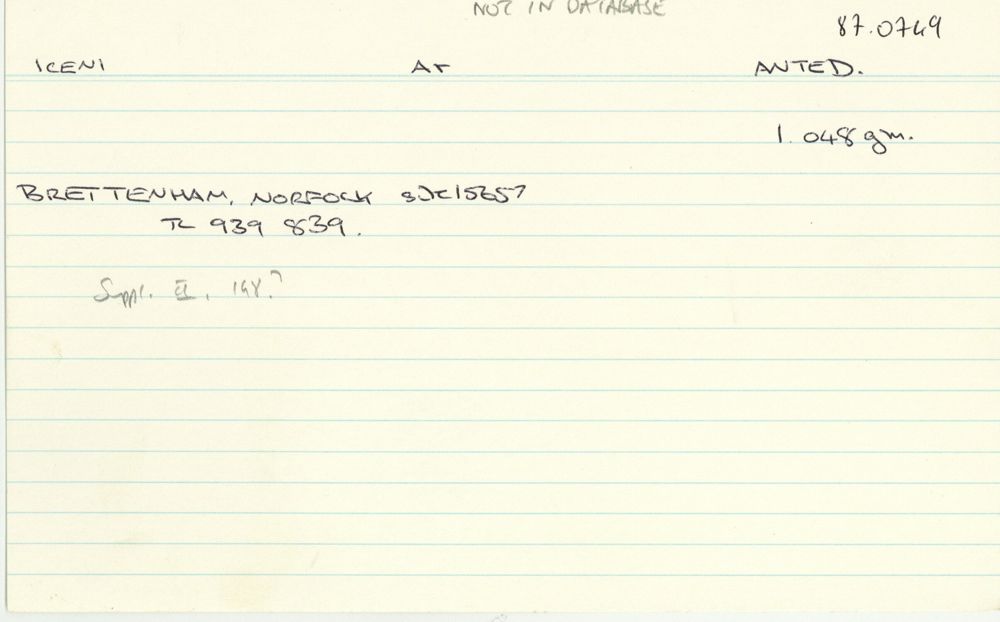 NOT IN DATABASE
87.0749
ICENI Ar ANTED.
1.048 gm.
BRETTENHAM, NORFOCK
TL 939 839.
Suppl. II,